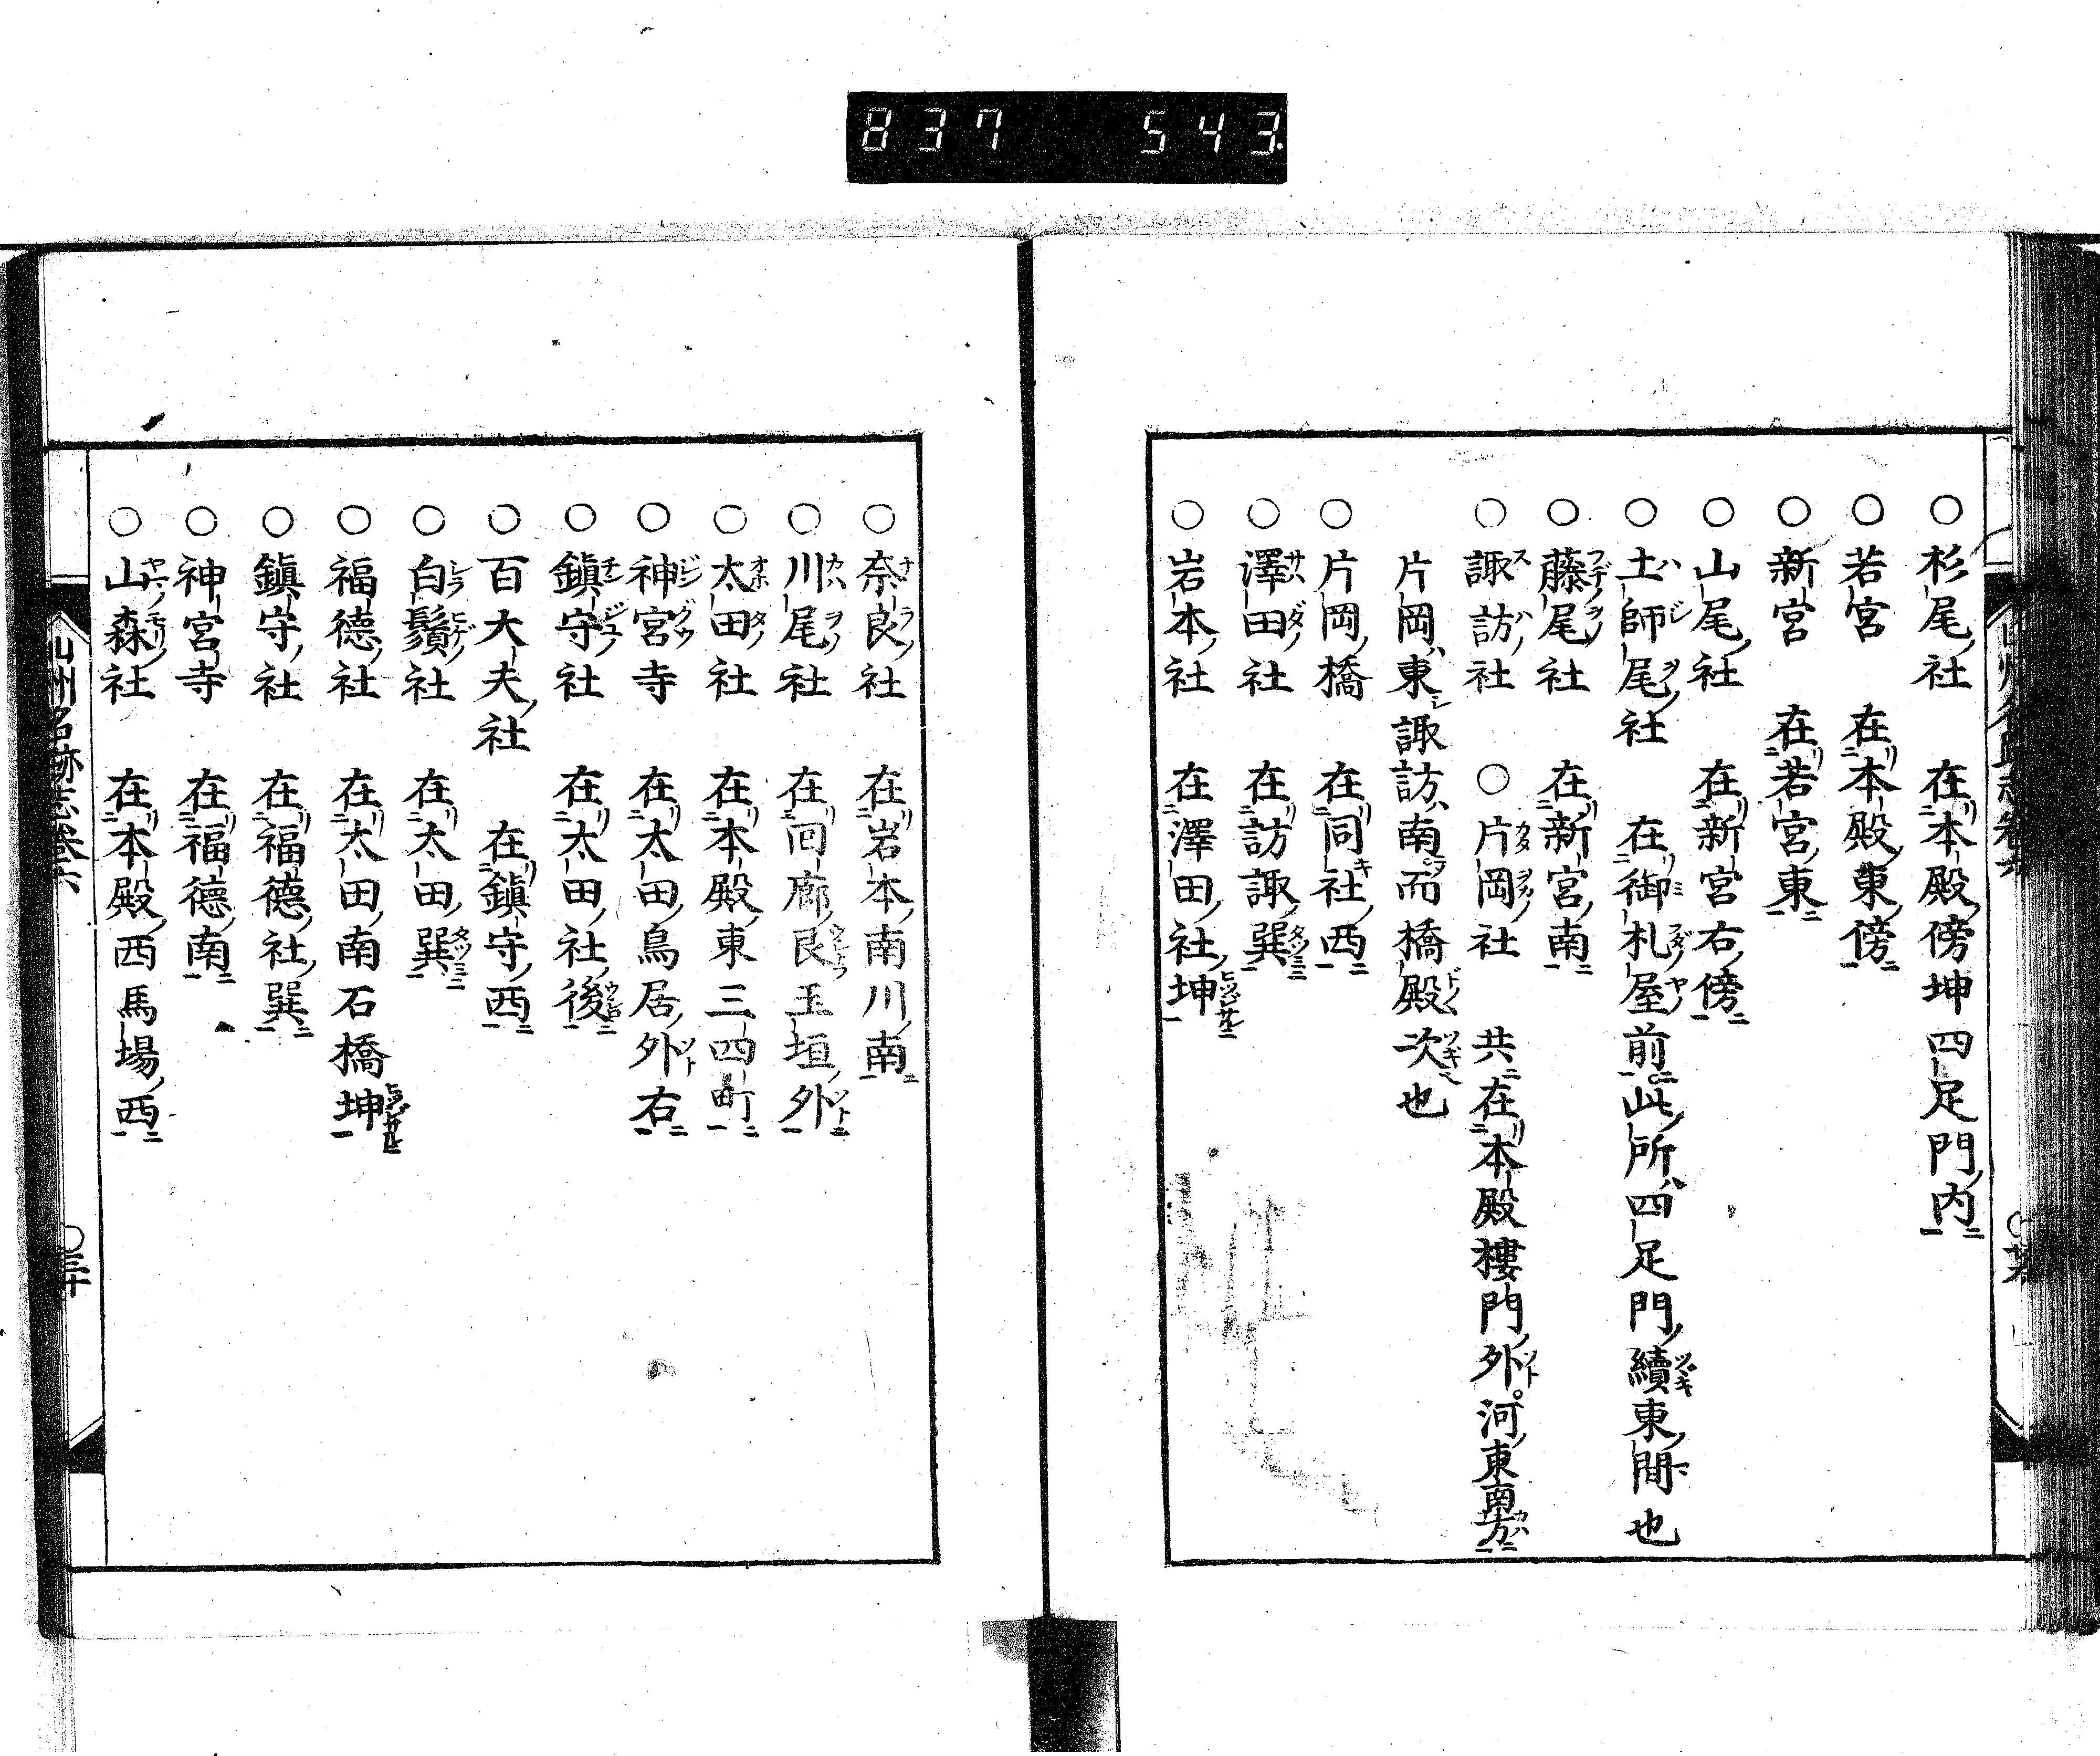 837 543
○杉尾社 在本殿傍坤四足門内
○若宮 在本殿東傍
○新宮 在若宮東
○山尾社 在新宮右傍
○土師尾社 在御札屋前此所四足門續東間也
○藤尾社 在新宮南
○諏訪社 ○片岡社 共在本殿樓門外河東南方
片岡東諏訪南而橋殿次也
○片岡橋 在同社西
○澤田社 在訪諏巽
○岩本社 在澤田社坤
○奈良社 在岩本南川南
○川尾社 在回廊艮玉垣外
○太田社 在本殿東三四町
○神宮寺 在太田鳥居外右
○鎮守社 在太田社後
○百大夫社 在鎮守西
○白鬚社 在太田巽
○福徳社 在太田南石橋坤
○鎮守社 在福徳社巽
○神宮寺 在福徳南
○山森社 在本殿西馬場西
山州名跡志卷六 ○三十